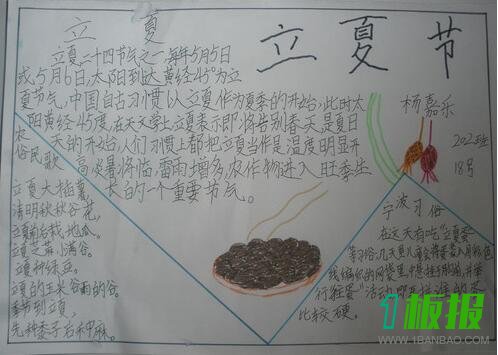 立 夏
立夏节
立夏二十四节气之一每年5月5日
或5月6日,太阳到达黄经45°为立
夏节气,中国自古习惯以立夏作为夏季的开始,此时太
阳黄经45度,在天文学上立夏表示即将告别春天是夏日
天的开始,人们习惯上都把立夏当作是温度明显升
高,炎暑将临,雷雨增多,农作物进入旺季生
长的一个重要节气。
杨嘉乐
202班
18号
农俗民歌
立夏大插薯,
清明秋秋谷花,
立夏前后栽地瓜。
立夏芝麻小满谷。
立夏种绿豆。
立夏的玉米谷雨的谷。
季节到立夏,
先种黍子后种麻。
宁波习俗
在这天有吃"立夏蛋"
习俗,几天
线编织的网袋里,
行
活动
比较硬。
1板报
WWW.1BANBAO.COM